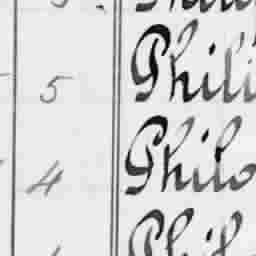 5 Phili
4 Philo
Phil